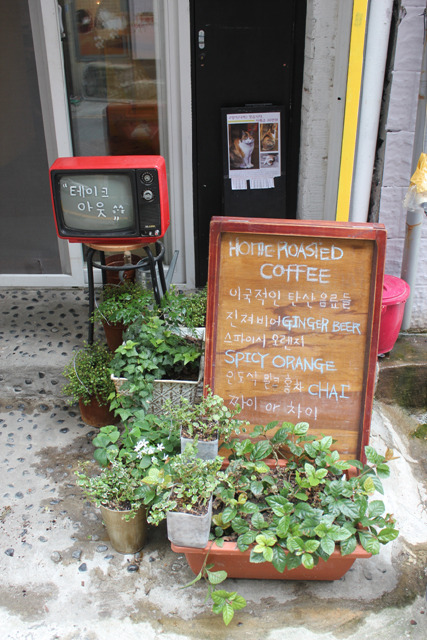 "테이크
아웃
HOME ROASTED
COFFEE
이국적인 탄산음료들
진저비어 GINGER BEER
스파이시 오렌지
SPICY ORANGE
인도식 밀크홍차 CHAI
짜이 or 차이